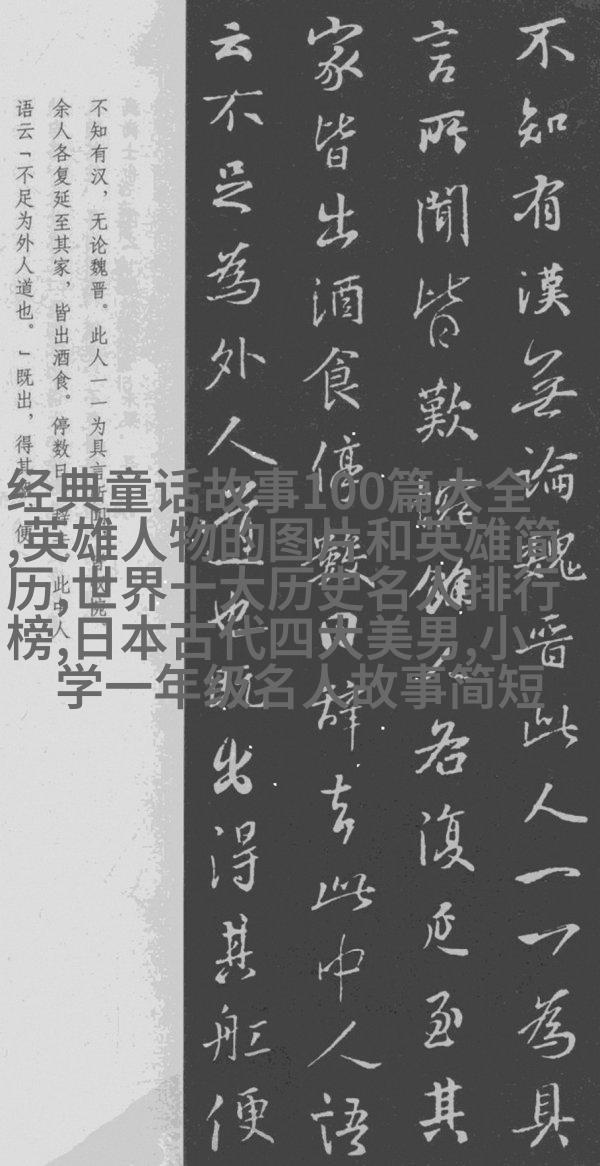 不知有漢無論魏晉此人一一為具
言所聞皆歎惋餘人各復延至其
家皆出酒食停數日辭去此中人語
云不足為外人道也既出得其舡便
不知有汉，无论魏晋。此人一一为具言
余人各复延至其家，皆出酒食。停数日，辞去。此中人
语云「不足为外人道也。」既出，得其
经典童话故事100篇大全
,英雄人物的图片和英雄简
历,世界十大历史名人排行
榜,日本古代四大美男,小
学一年级名人故事简短